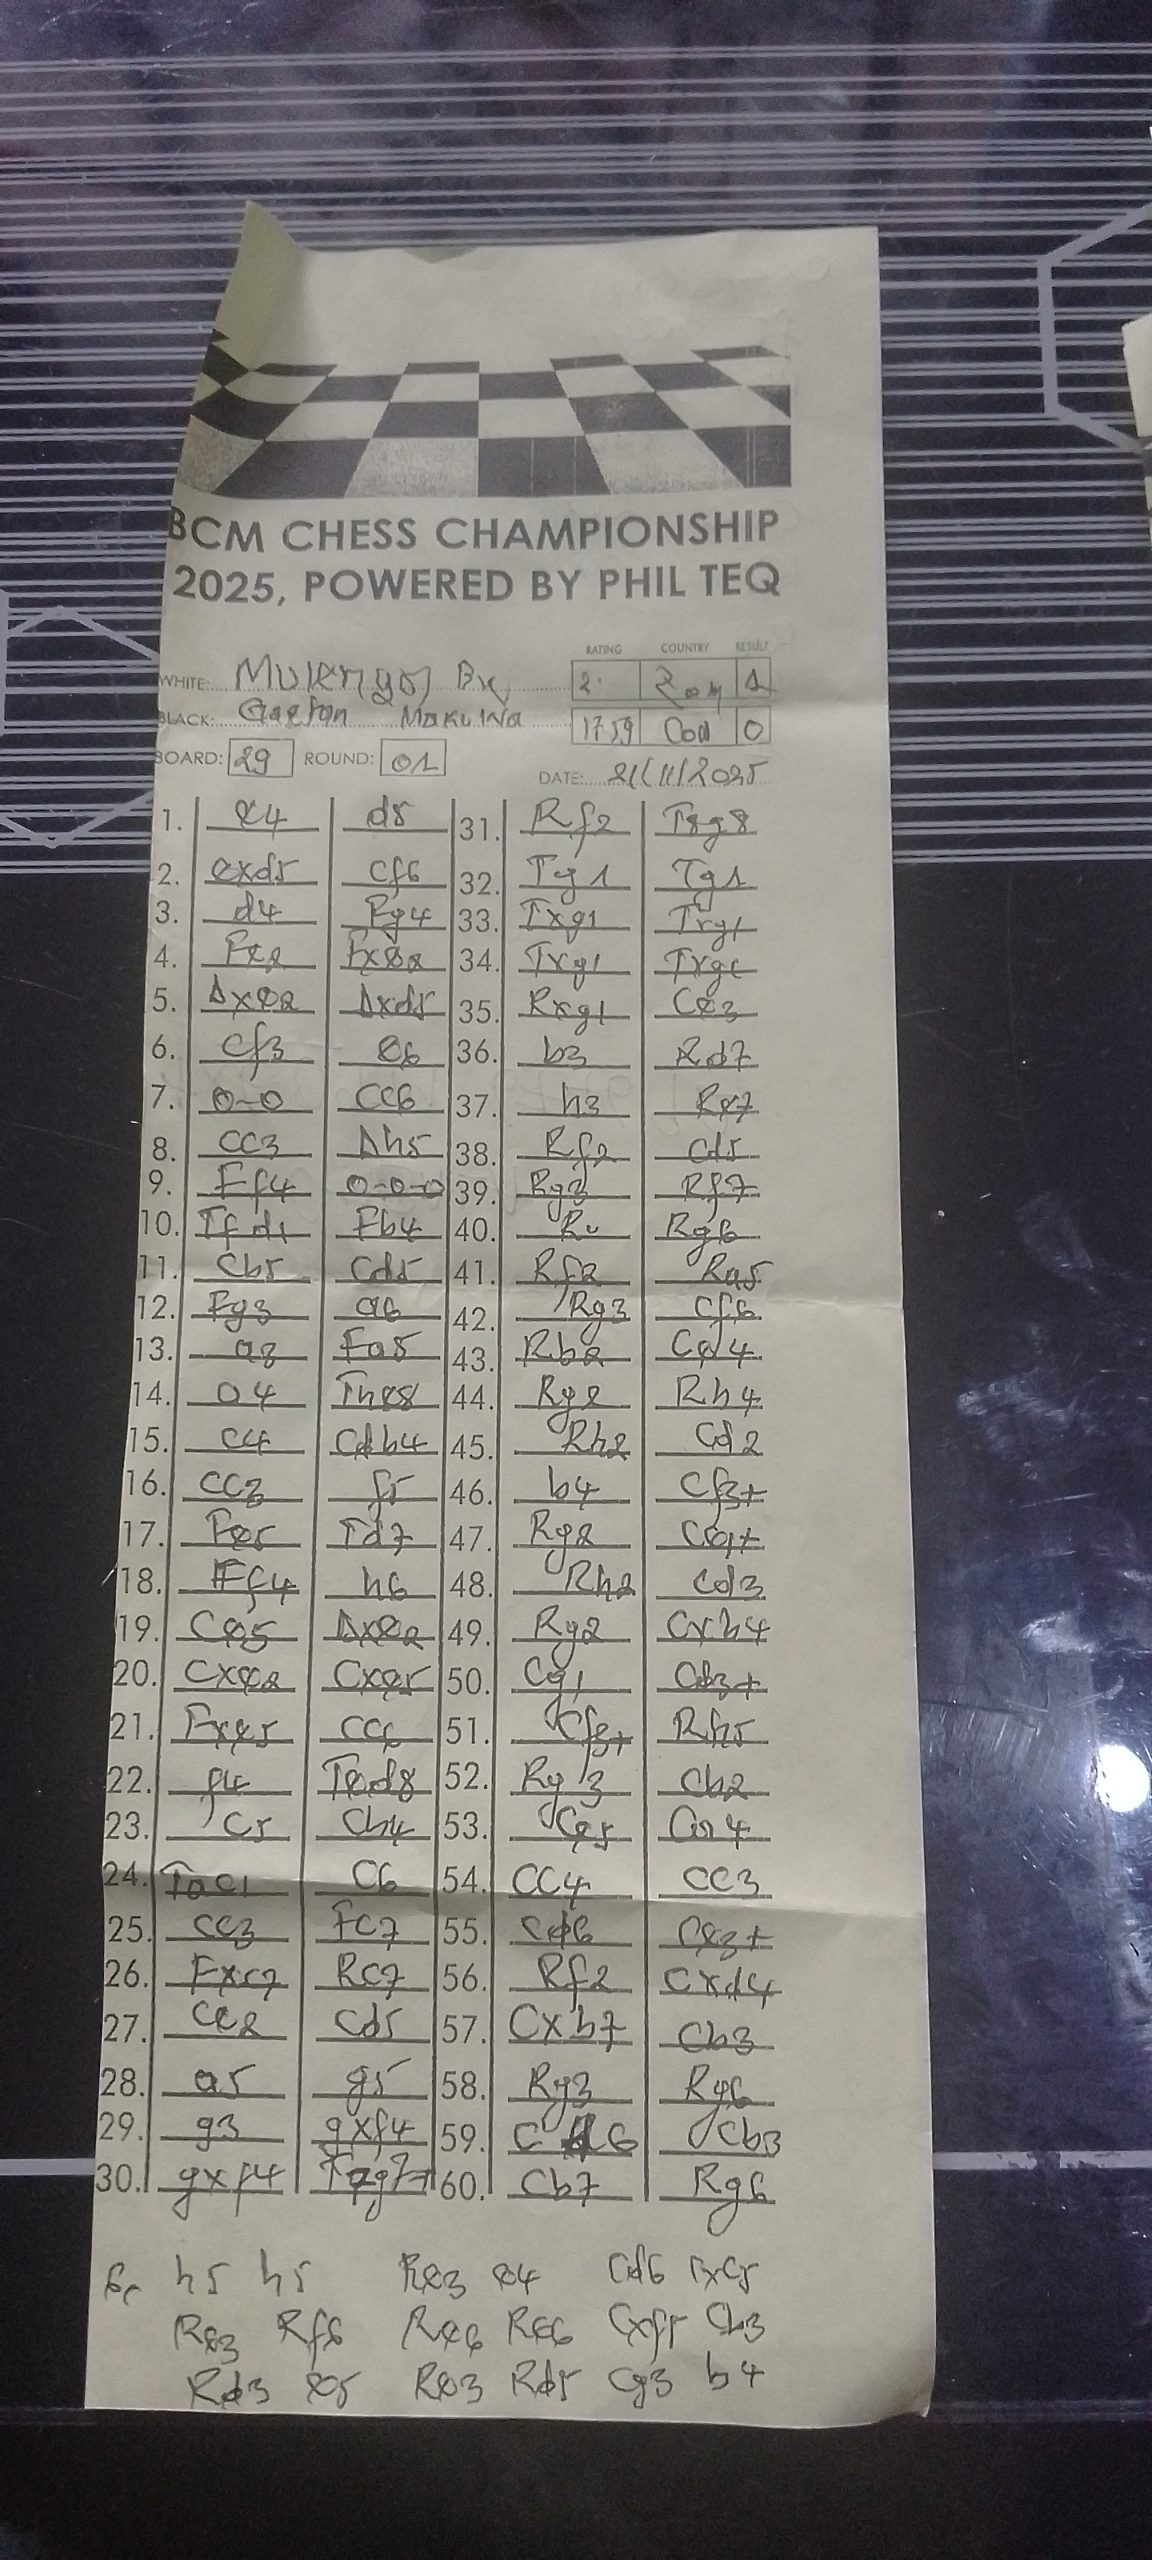 BCM CHESS CHAMPIONSHIP
2025, POWERED BY PHIL TEQ
RATING COUNTRY RESULT
WHITE: 1
BLACK: Gaetan Makuwa 0
BOARD: 29 ROUND: 01
DATE: 21/11/2025
1. e4 d5 31. Rf2 T8g8
2. exd5 Cf6 32. Tg1 Tg1
3. d4 Fg4 33. Txg1 Txg1
4. Fe2 Fxe2 34. Txg1 Txg1
5. Dxe2 Dxd5 35. Rxg1 Ce3
6. Cf3 e6 36. b3 Rd7
7. 0-0 Cc6 37. h3 Re7
8. Cc3 Dh5 38. Rf2 Cd5
9. Ff4 0-0-0 39. Rg3 Rf7
10. Tfd1 Fb4 40. Rg6
11. Cb5 Cd5 41. Rf2
12. Fg3 a6 42. Rg3 Cf6
13. a3 Fa5 43. Ce4
14. a4 The8 44. Rg2 Rh4
15. c4 Cdb4 45. Rh2 Cd2
16. Cc3 f5 46. b4 Cf3+
17. Fe5 Td7 47. Rg2 Ce1+
18. Ff4 h6 48. Rh2 Cd3
19. Ce5 Dxe2 49. Rg2 Cxb4
20. Cxe2 Cxe5 50. Cg1 Cd3+
21. Fxe5 Cc6 51. Cf3+ Rh5
22. f4 Ted8 52. Rg3 Cb2
23. c5 Cb4 53. Ce5 Ca4
24. Tac1 c6 54. Cc4 Cc3
25. Cc3 Fc7 55. Cd6 Ce3+
26. Fxc7 Rc7 56. Rf2 Cxd4
27. Ce2 Cd5 57. Cxb7 Cb3
28. a5 g5 58. Rg3 Rg6
29. g3 gxf4 59. Cd6 Cb3
30. gxf4 60. Cb7 Rg6
h5 h5 Re3 e4 Cd6
Re3 Rf6 Cxf5 Cb3
Rd3 e5 Re3 Rd5 Cg3 b4